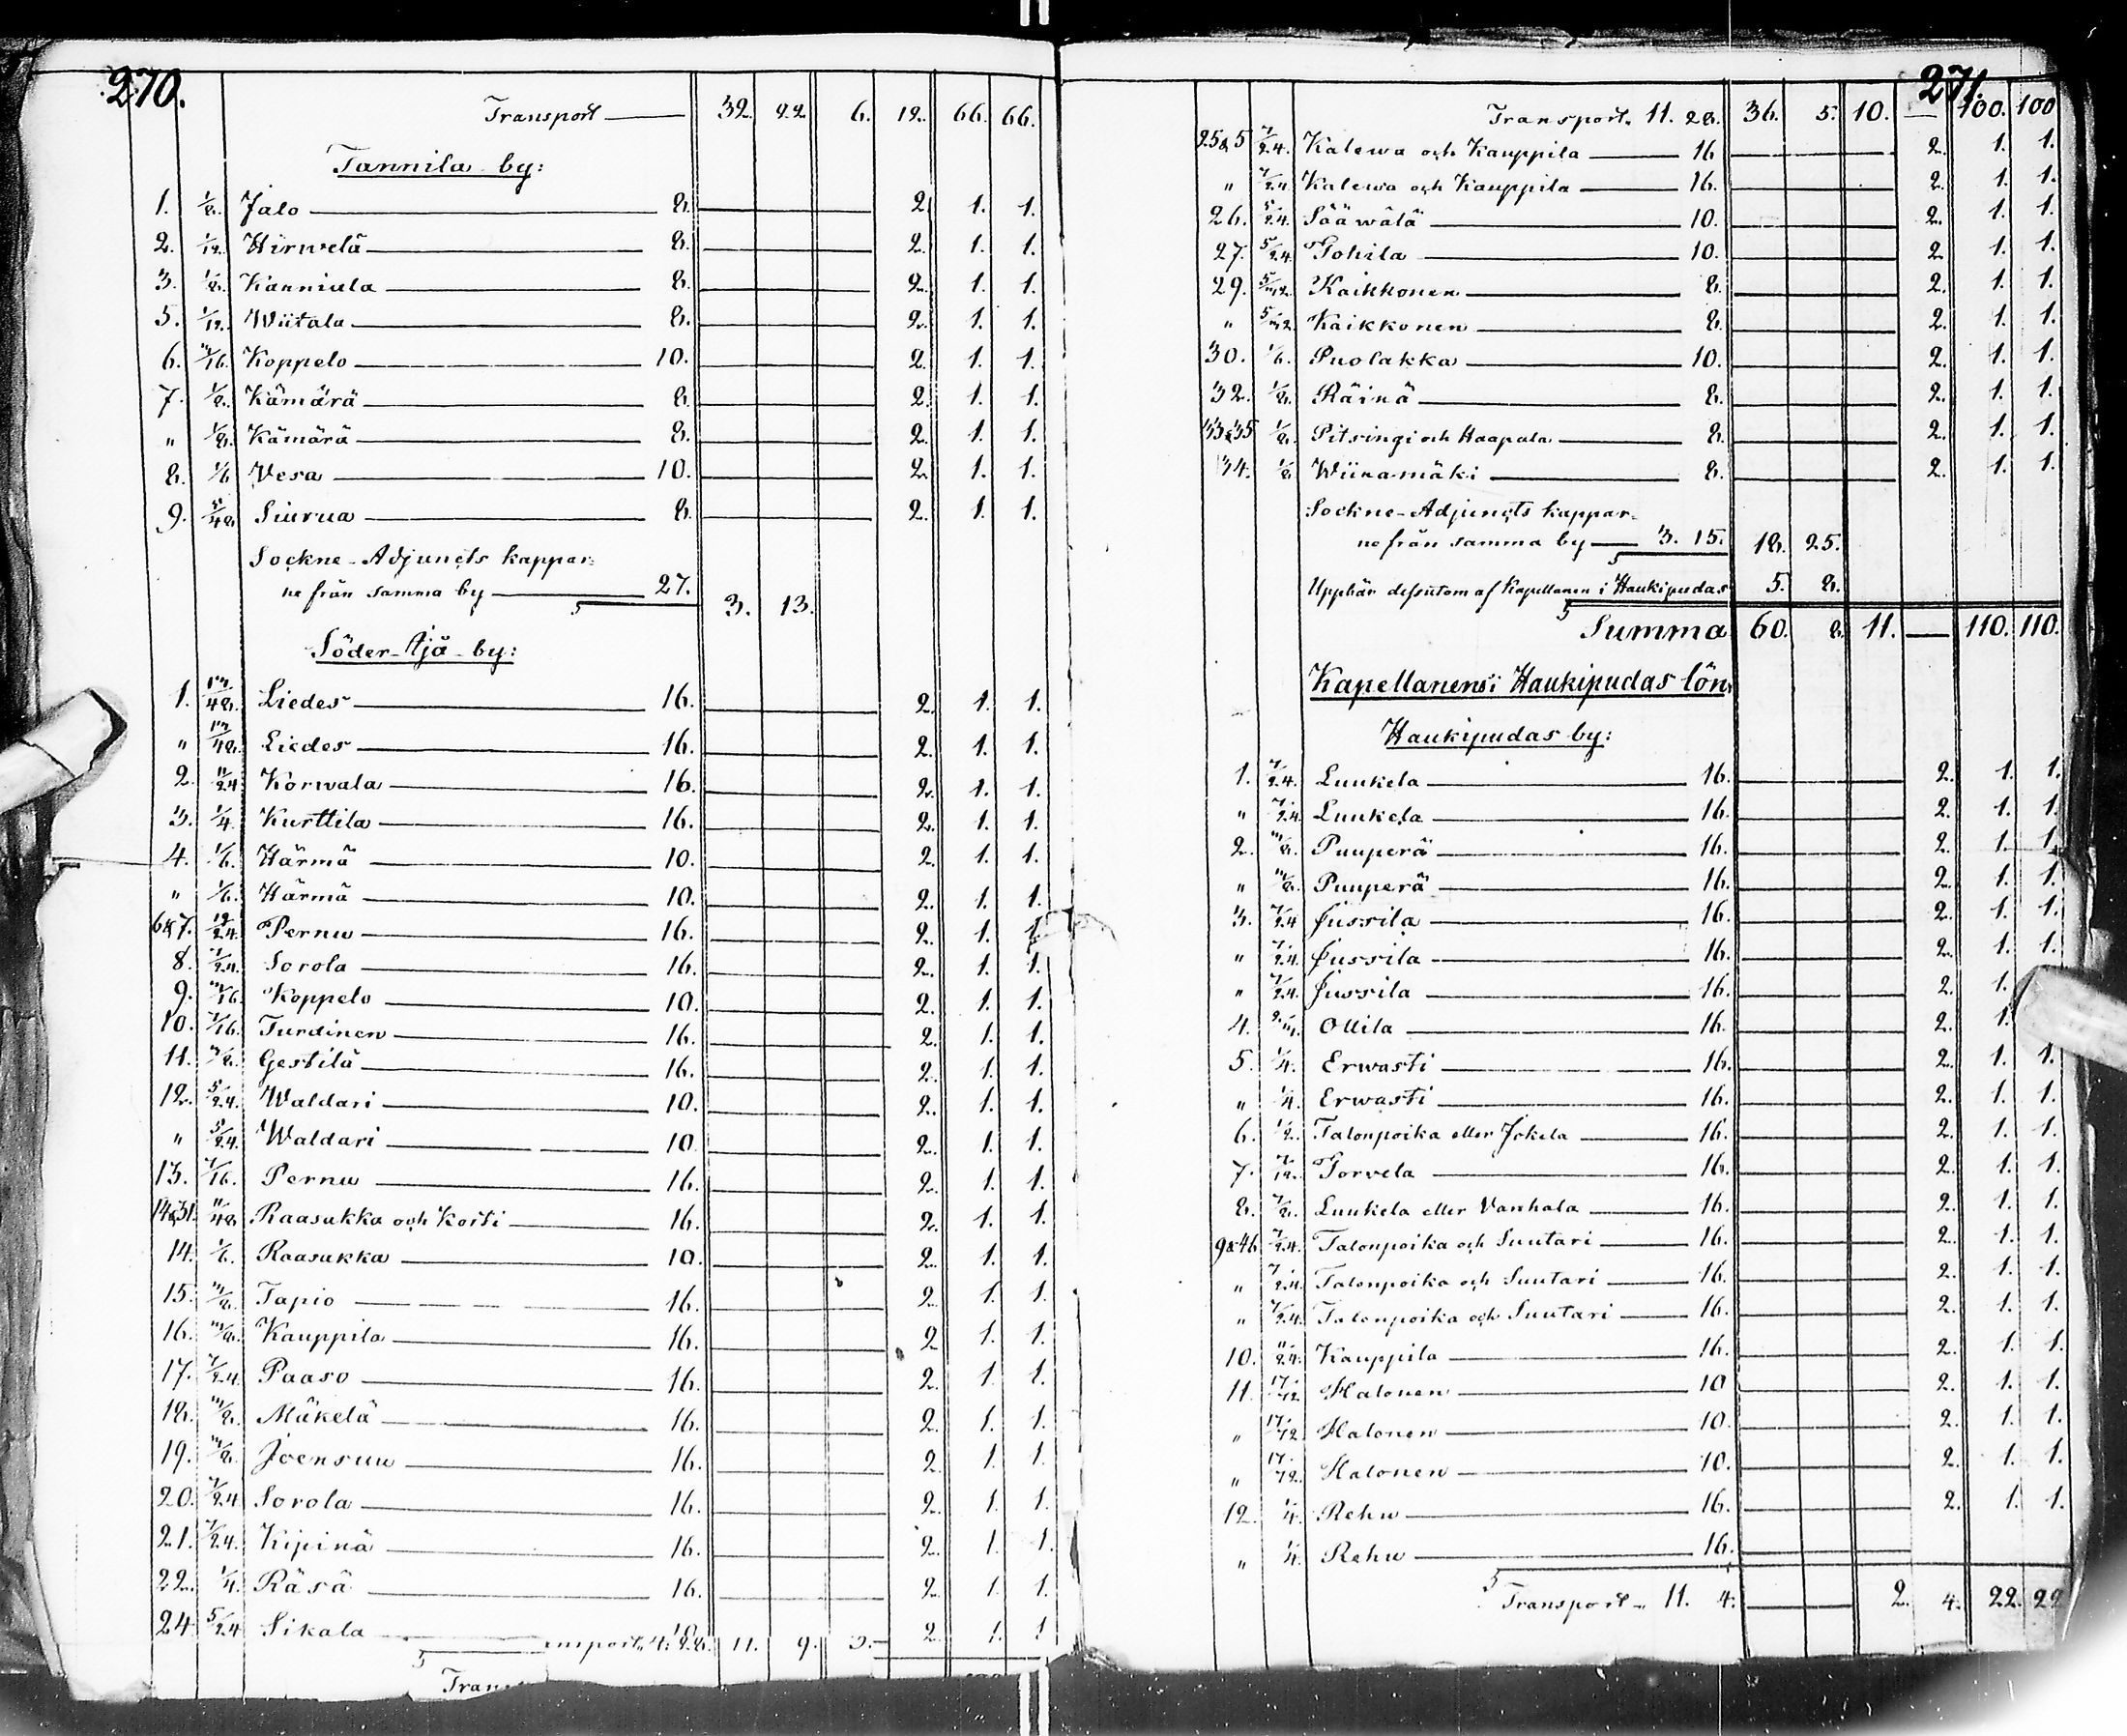 270.
Transport 32. 22. 6. 12. 66. 66.
Tannila by:
1. 1/8. Jalo 8. 2. 1. 1.
2. 1/12. Hirwelä 8. 2. 1. 1.
3. 1/8. Kanniala 8. 2. 1. 1.
5. 1/12. Wiitala 8. 2. 1. 1.
6. 3/16. Koppelo 10. 2. 1. 1.
7. 1/8. Kämärä 8. 2. 1. 1.
" 1/8. Kämärä 8. 2. 1. 1.
8. 1/6 Vesa 10. 2. 1. 1.
9. 5/48 Siurua 8. 2. 1. 1.
Sockne-Adjuncts kappar-
ne från samma by 27.
3. 13.
Söder-Ijå by:
1. 13/48. Liedes 16. 2. 1. 1.
" 13/48. Liedes 16. 2. 1. 1.
2. 11/24 Korwala 16. 2. 1. 1.
3. 1/4. Kurttila 16. 2. 1. 1.
4. 1/6. Härmä 10. 2. 1. 1.
" 1/6. Härmä 10. 2. 1. 1.
6&7. 19/24. Pernu 16. 2. 1. 1.
8. 7/24. Sorola 16. 2. 1. 1.
9. 3/16. Koppelo 10. 2. 1. 1.
10. 7/16. Turdinen 16. 2. 1. 1.
11. 3/8. Gestilä 16. 2. 1. 1.
12. 5/24. Waldari 10. 2. 1. 1.
" 5/24. Waldari 10. 2. 1. 1.
13. 7/16. Pernu 16. 2. 1. 1.
14&31. 11/48 Raasukka och Koiti 16. 2. 1. 1.
14. 1/6. Raasukka 10. 2. 1. 1.
15. 3/8. Tapio 16. 2. 1. 1.
16. 3/8. Kauppila 16. 2. 1. 1.
17. 7/24. Paaso 16. 2. 1. 1.
18. 3/8. Mäkelä 16. 2. 1. 1.
19. 3/8. Joensuu 16. 2. 1. 1.
20. 7/24 Sorola 16. 2. 1. 1.
21. 7/24. Kipinä 16. 2. 1. 1.
22. 1/4. Räsä 16. 2. 1. 1.
24. 5/24 Sikala 10. 2. 1. 1
271.
Transport. 11. 28. 36. 5. 10. — 100. 100
25&5 7/24. Kalewa och Kauppila 16 2. 1. 1.
" 7/24 Kalewa och Kauppila 16. 2. 1. 1.
26. 5/24. Sääwälä 10. 2. 1. 1.
27. 5/24. Tohila 10. 2 1. 1.
29. Kaikkonen 8. 2. 1. 1.
" Kaikkonen 8. 2. 1. 1.
30. 1/6. Puolakka 10. 2. 1. 1.
32. 1/8. Räinä 8. 2. 1. 1.
33&35 1/8. Pitsingi och Haapala 8. 2. 1. 1.
34. 1/8 Wiinamäki 8. 2. 1. 1.
Sockne-Adjuncts kappar-
ne från samma by 3. 15. 18. 25.
Uppbär dessutom af Kapellanen i Haukipudas 5. 8.
Summa 60. 8. 11. — 110. 110.
Kapellanens i Haukipudas lön.
Haukipudas by:
1. 7/24. Luukela 16. 2. 1. 1.
" 7/24 Luukela 16. 2. 1. 1.
2. 3/8. Puuperä 16. 2. 1. 1
" 3/8. Puuperä 16. 2. 1. 1.
3. 7/24 Jussila 16. 2. 1. 1.
" 7/24. Jussila 16. 2. 1. 1.
" 7/24. Jussila 16. 2. 1.
4. Ollila 16. 2. 1.
5. 1/4. Erwasti 16. 2. 1. 1.
" 1/4. Erwasti 16. 2. 1. 1.
6. 1/2. Talonpoika eller Jokela 16. 2. 1. 1.
7. 7/12. Torvela 16. 2. 1. 1.
8. 7/8. Luukela eller Vanhala 16. 2. 1. 1.
9&46 7/24. Talonpoika och Suutari 16. 2. 1. 1.
" 7/24. Talonpoika och Suutari 16. 2. 1. 1.
" 7/24. Talonpoika och Suutari 16. 2. 1. 1.
10. 11/24. Kauppila 16. 2. 1. 1.
11. 17/72 Halonen 10 2. 1. 1.
" 17/72 Halonen 10. 2. 1. 1.
" 17/72. Halonen 10. 2. 1. 1.
12. 1/4. Rehu 16. 2. 1. 1.
" 1/4. Rehu 16.
Transport. 11. 4. 2. 4. 22. 22